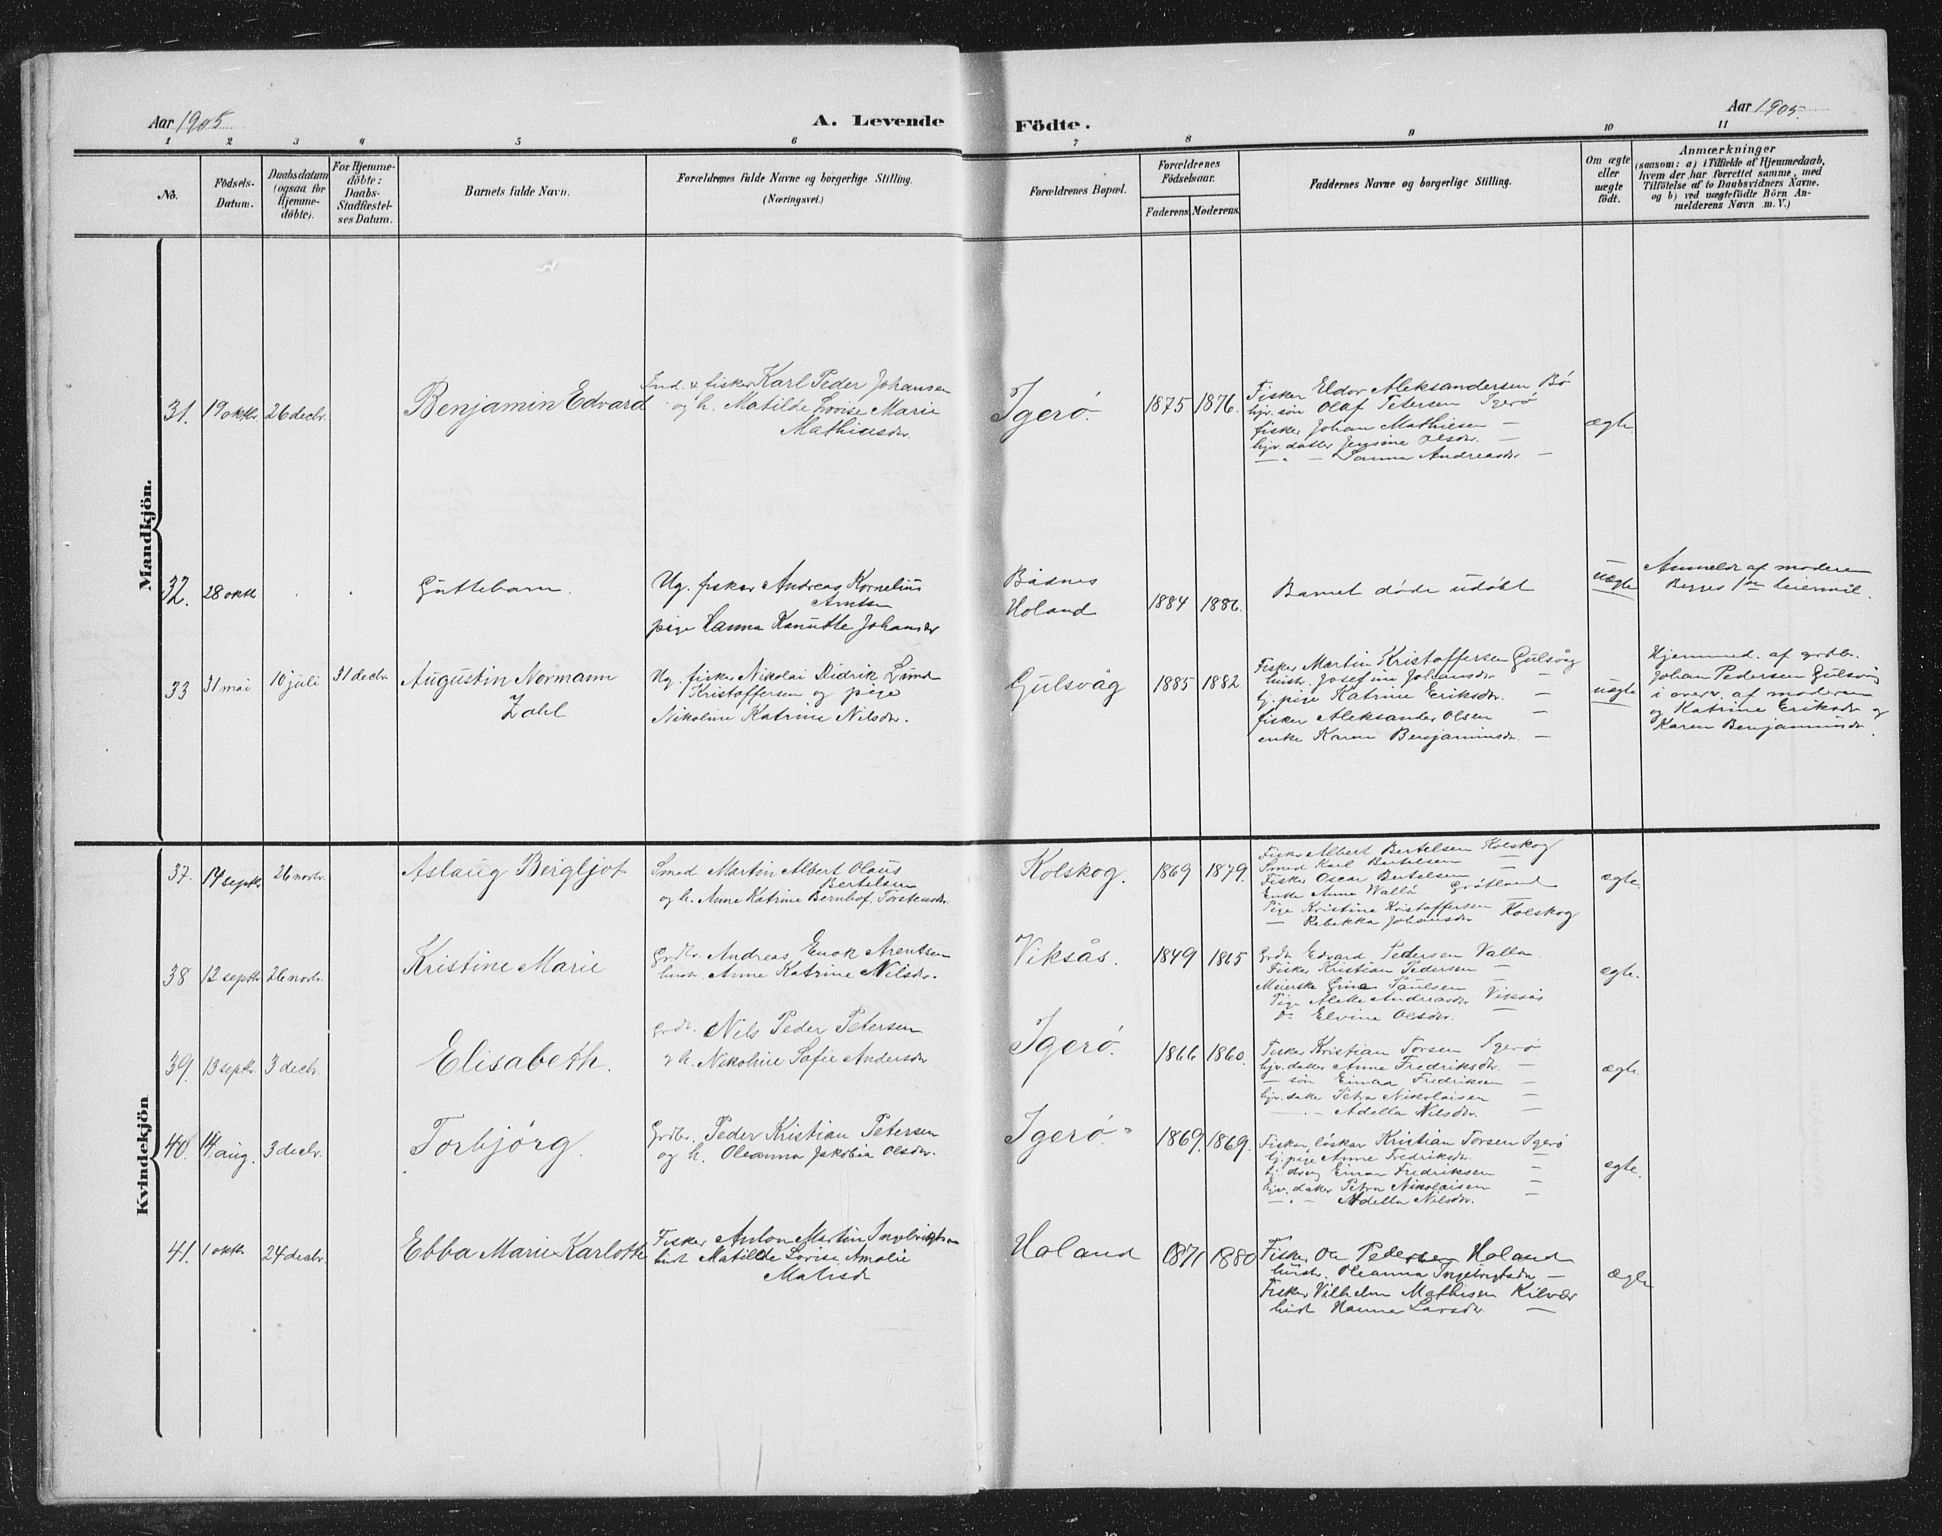 Aar 1905
A. Levende Födte.
Aar 1905.
1 2 3 4 5 6 7 8 9 10 11
No.
Födsels-Datum.
Daabsdatum (ogsaa for Hjemme-döbte).
For Hjemme-döbte: Daabs-Stadfæstel-ses Datum.
Barnets fulde Navn.
Forældrenes fulde Navne og borgerlige Stilling.
(Næringsvei.)
Forældrenes Bopæl.
Forældrenes Födselsaar.
Faderens. Moderens.
Faddernes Navne og borgerlige Stilling.
Om ægte eller uægte födt.
Anmærkninger
(saasom: a) i Tilfælde af Hjemmedaab, hvem der har forrettet samme, med Tilföielse af to Daabsvidners Navne. og b) ved uægtefödte Börn An-melderens Navn m. V.)
Mandkjön.
31. 19 oktbr. 26 decbr. Benjamin Edvard
Ind. & fisker Karl Peder Johansen
og h. Matilde Lovise Marie
Mathiusdr.
Igerø. 1875 1876.
Fisker Eldor Aleksandersen Bø
hjv. søn Olaf Petersen Igerø
fisker Johan Mathiesen —
hjv. datter Jensine Olsdr. —
— " — Sanna Andreasdr —
ægte.
32. 28 oktbr . . Guttebarn.
Ug. fisker Andreas Kornelius
Arntsen
pige Hanna Kanutte Johansdr
Bådnes
Holand
1884 1886.
Barnet døde udøbt
uægte
Anmeldt af moderen
Begges 1ste leiermål.
33 31 mai 10 juli 31 decbr. Augustin Normann
Zahl
Ug. fisker Nikolai Didrik Lund
Kristoffersen og pige
Nikoline Katrine Nilsdr.
Gulsvåg 1885 1882
Fisker Martin Kristoffersen Gulsvåg
hustr. Josefine Johansdr —
tj. pige Katrine Eriksdr. —
fisker Aleksander Olsen —
enke Karen Benjaminsdr. —
uægte
Hjemmed. af grdbr.
Johan Pedersen Gulsvåg
i overv. af moderen
og Katrine Eriksdr og
Karen Benjaminsdr.
Kvindekjön
37. 14 septbr. 26 novbr. Aslaug Bergljot
Smed Martin Albert Olaus
Bertelsen
og h. Anne Katrine Bernhof. Torstensdr.
Kolskog. 1869 1879.
Fisker Albert Bertelsen Kolskog
Smed Karl Bertelsen —
Fisker Oscar Bertelsen
Enke Anne Wallø Grøtland
Pige Kristine Kristoffersen Kolskog
— Rebekka Johansdr
ægte.
38 12 septbr 26 novbr. Kristine Marie
Grdbr. Andreas Enok Arentsen
hustr. Anne Katrine Nilsdr.
Viksås. 1849 1865
Grdb. Edvard Pedersen Valla
Fisker Kristian Pedersen —
Meierske Gina Paulsen —
Pige Aleke Andreasdr Viksås
Do Elvine Olsdr.
ægte.
39. 13 septbr. 3 decbr. Elisabeth.
Grdb. Nils Peder Petersen
og h. Nikoline Sofie Andersdr
Igerø. 1866 1860.
Fisker Kristian Torsen Igerø
hjv. datter Anne Fredriksdr. —
— søn Einar Fredriksen —
hjv. datter Petra Nikolaisen —
— " — Adella Nilsdr. —
ægte
40. 14 aug. 3 decbr. Torbjörg.
Grdbr. Peder Kristian Petersen
og h. Oleanna Jakobia Olsdr.
Igerø. 1869. 1869.
Fisker, løskar Kristian Torsen Igerø
tj. pige Anne Fredriksdr. —
tj. dreng Einar Fredriksen —
hjv. datter Petra Nikolaisen —
— " — Adella Nilsdr. —
ægte.
41. 1 oktbr 24 decbr. Ebba Marie Karlotte
Fisker Anton Martin Ingebrigtsen
hust Matilde Lovise Amalie
Matisdr
Holand 1871 1880
Fisker Ole Pedersen Holand
hustr. Oleanna Ingebrigtsdr —
Fisker Vilhelm Mathisen Kilvær
hust Hanna Larsdr. —
ægte